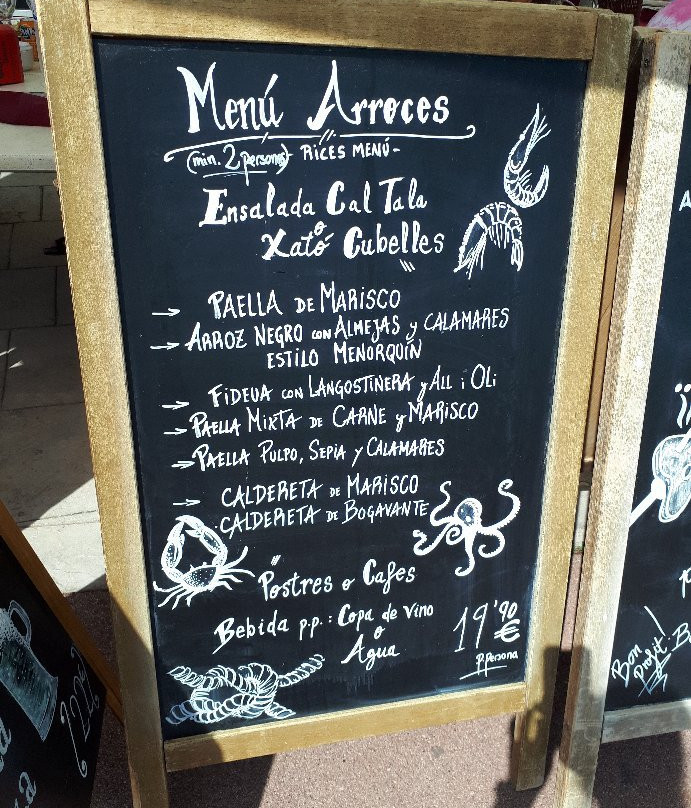 Menú Arroces
(min. 2 persones) - RICES MENÚ -
Ensalada Cal Tala
o
Xató Cubelles
→ PAELLA DE MARISCO
→ ARROZ NEGRO con ALMEJAS y CALAMARES
ESTILO MENORQUÍN
→ FIDEUA con LANGOSTINERA y ALL i OLi
→ PAELLA MIXTA DE CARNE y MARISCO
→ PAELLA PULPO, SEPIA y CALAMARES
→ CALDERETA DE MARISCO
CALDERETA DE BOGAVANTE
Postres o Cafes
Bebida p.p.: Copa de vino
o
Agua
19'90 €
P. Persona
Bon
Profit!